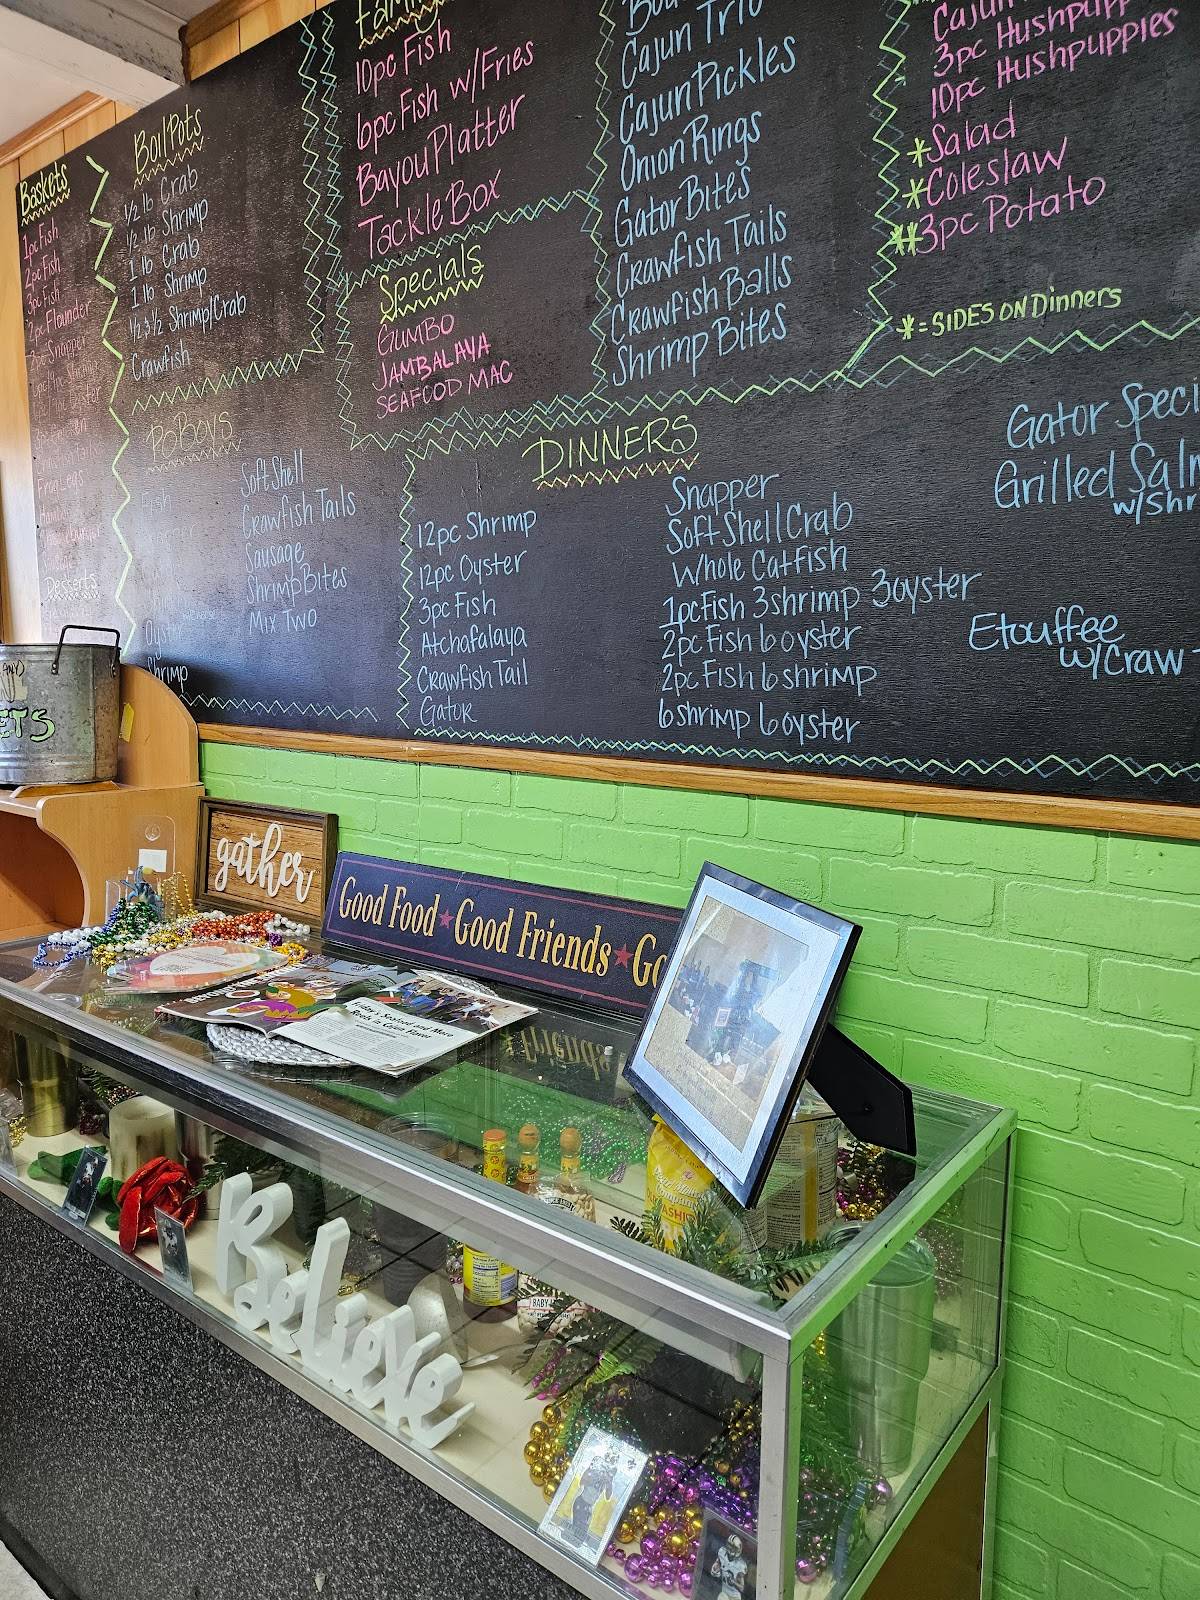 Baskets
1pc Fish
2pc Fish
3pc Fish
2pc Flounder
Snapper
Frog Legs
Desserts
Boil Pots
1/2 lb Crab
1/2 lb Shrimp
1 lb Crab
1 lb Shrimp
1/2 & 1/2 Shrimp/Crab
Crawfish
PoBoys
Fish
Oyster
Shrimp
Soft Shell
Crawfish Tails
Sausage
Shrimp Bites
Mix Two
Family
10pc Fish
6pc Fish w/Fries
Bayou Platter
Tackle Box
Specials
GUMBO
JAMBALAYA
SEAFOOD MAC
Cajun Trio
Cajun Pickles
Onion Rings
Gator Bites
Crawfish Tails
Crawfish Balls
Shrimp Bites
Cajun
3pc Hushpupp
10pc Hushpuppies
*Salad
*Coleslaw
**3pc Potato
*=SIDES ON Dinners
DINNERS
12pc Shrimp
12pc Oyster
3pc Fish
Atchafalaya
Crawfish Tail
Gator
Snapper
Soft Shell Crab
Whole Catfish
1pc Fish 3 shrimp 3 oyster
2pc Fish 6 oyster
2pc Fish 6 shrimp
6 shrimp 6 oyster
Gator Speci
Grilled Sal
w/Shr
Etouffee
w/Craw
ETS
gather
Good Food ★ Good Friends ★ Go
Friday's Seafood and More
Reels in Cajun Flavor
Believe
BABY